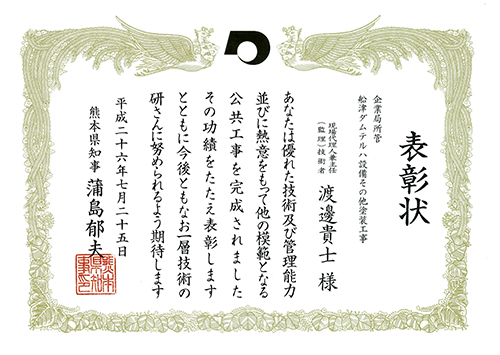 表彰状
企業局所管
船津ダムテルハ設備その他塗装工事
現場代理人兼主任
(監理)技術者
渡邊貴士 様
あなたは優れた技術及び管理能力
並びに熱意をもって他の模範となる
公共工事を完成されました
その功績をたたえ表彰します
とともに今後ともなお一層技術の
研さんに努められるよう期待します
平成二十六年七月二十五日
熊本県知事 蒲島郁夫
熊本県知事之印